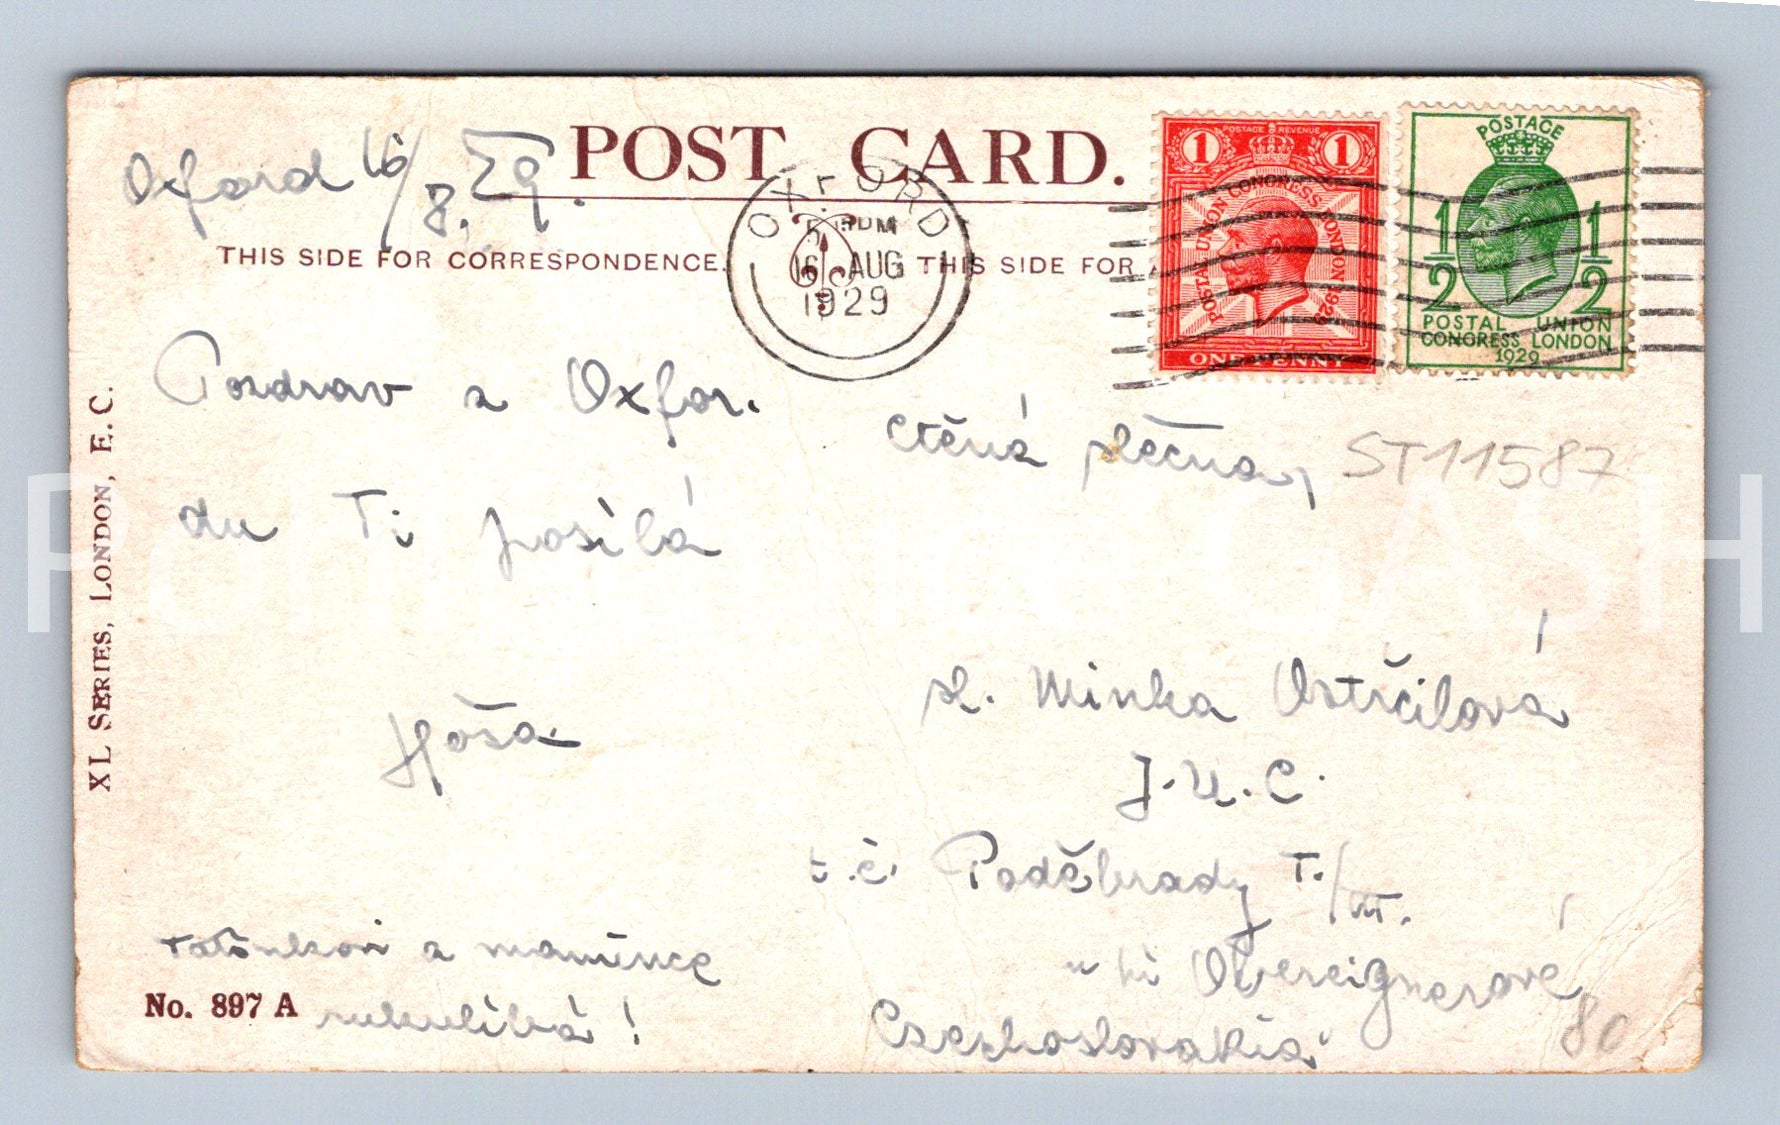 POST CARD.
Oxford 16/8. 29.
THIS SIDE FOR CORRESPONDENCE.
THIS SIDE FOR
OXFORD
5 PM
16 AUG
1929
1 POSTAGE REVENUE 1
POSTAL UNION CONGRESS LONDON 1929
ONE PENNY
POSTAGE
1/2 1/2
POSTAL UNION
CONGRESS LONDON
1929
Pozdrav z Oxfor.
du Ti posílá
Hóša
tatínkovi a mamince
rukulíbá!
XL SERIES, LONDON, E.C.
No. 897 A
Ctěná slečna,
ST11587
sl. Minka Ostrčilová
J.U.C.
t.č. Poděbrady T./III.
u pí
Czechoslovakia
80